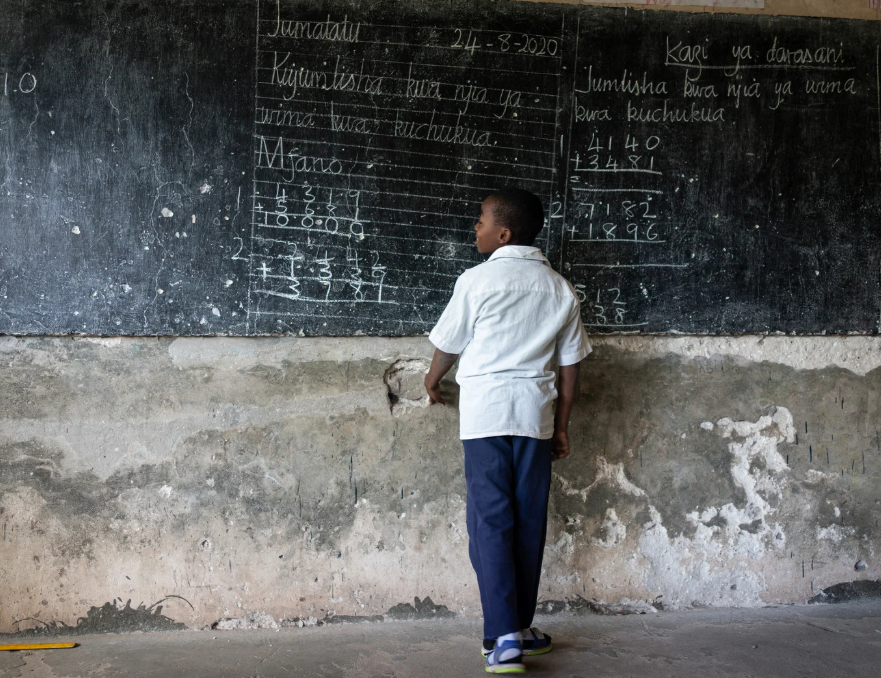 10
Jumatatu 24-8-2020
Kujumlisha kwa njia ya
wima kwa kuchukua.
Mfano
1 4319
+ 5881
2
3787
Kazi ya darasani.
Jumlisha kwa njia ya wima
kwa kuchukua.
1 4140
+ 3481
=
2 7182
+ 1896
512
38